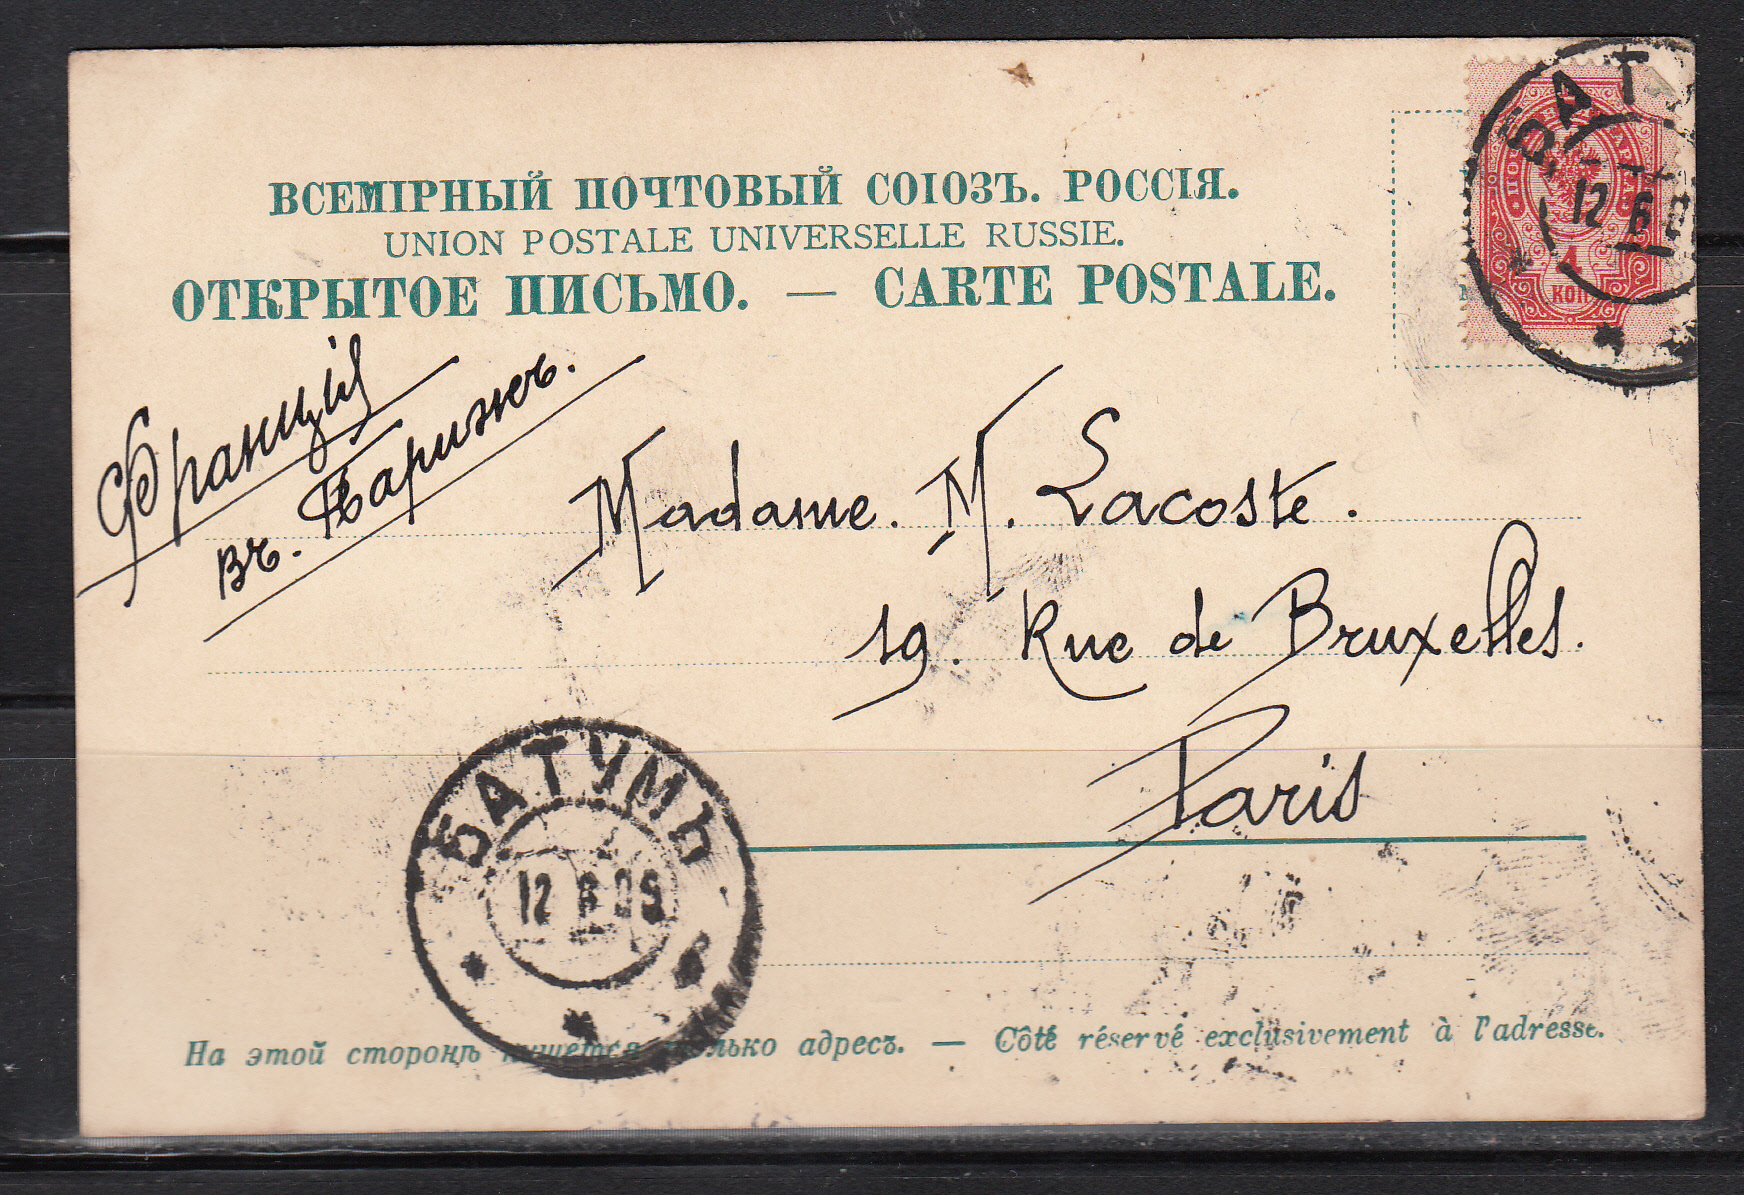 ВСЕМІРНЫЙ ПОЧТОВЫЙ СОЮЗЪ. РОССІЯ.
UNION POSTALE UNIVERSELLE RUSSIE.
ОТКРЫТОЕ ПИСЬМО. — CARTE POSTALE.
БАТ
12 6
4
КОП
Франція
въ. Парижъ.
Madame. M. Lacoste.
19. Rue de Bruxelles.
Paris
БАТУМЪ
12 6 05
На этой сторонѣ пишется только адресъ. — Côté réservé exclusivement à l'adresse.